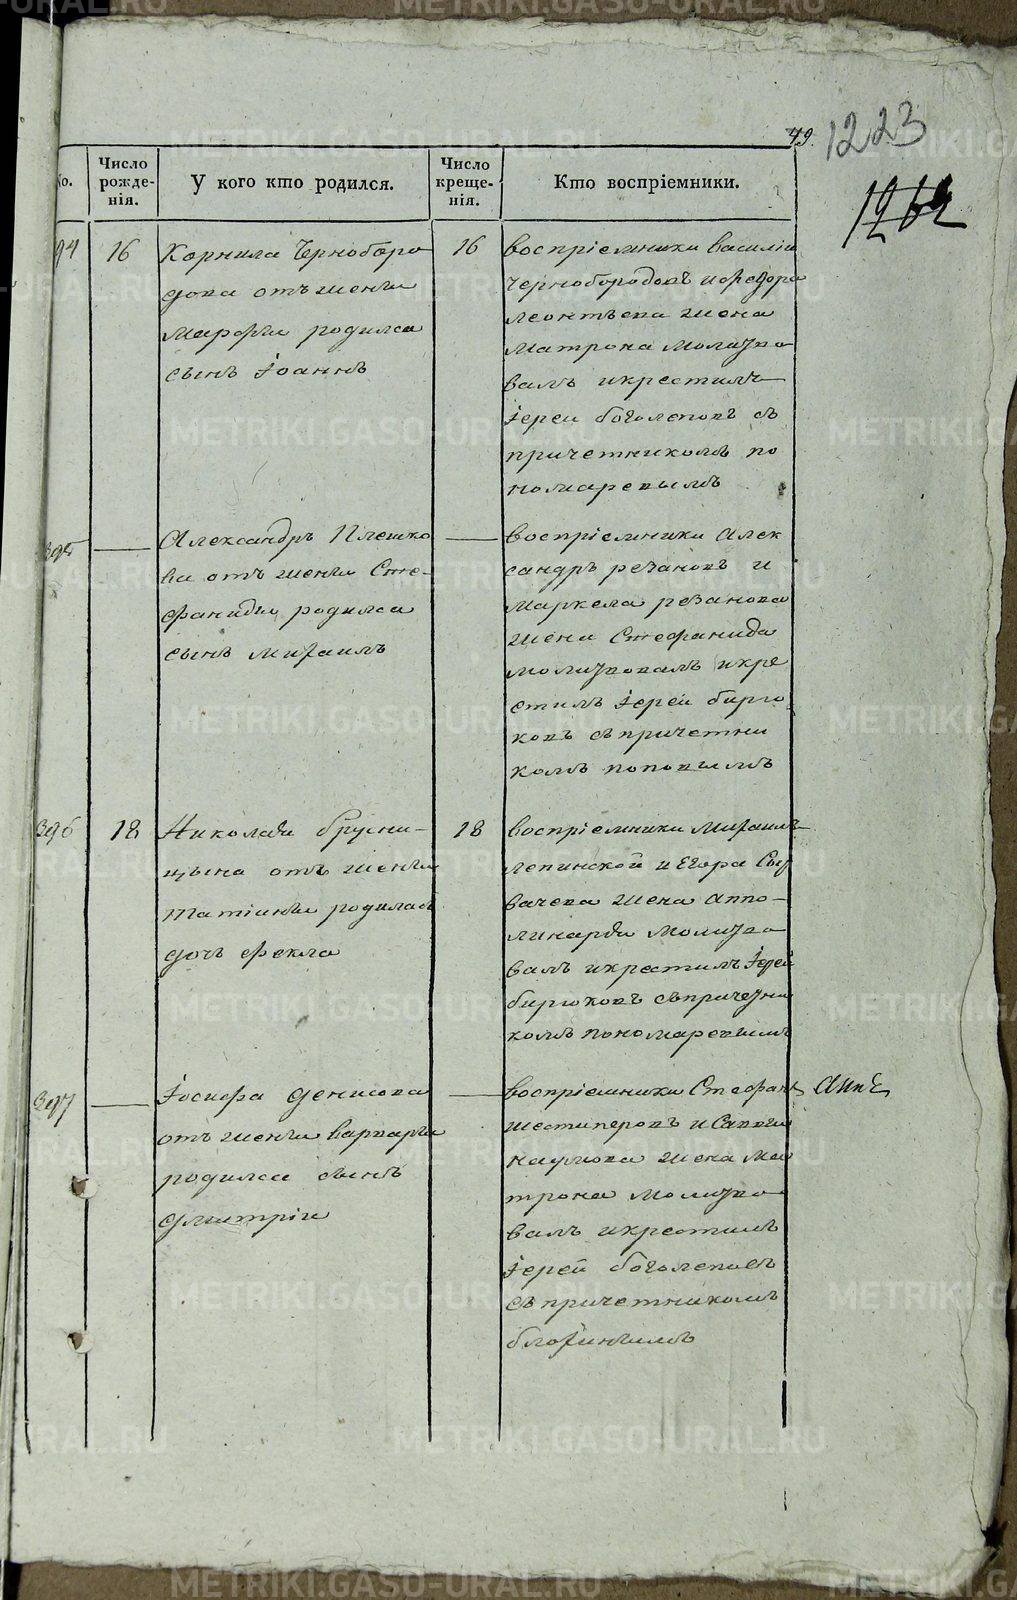 79.
1223
1262
No.
Число рожде-нія.
У кого кто родился.
Число креще-нія.
Кто воспріемники.
94
16
Корнила Чернобаро
дова отъ жены
Марфы родился
сынъ Іоаннъ
16
воспріемники Василіи
Чернобородовъ и Федора
Леонтьева жена
Матрона Молитво
валъ и крестилъ
Іереи боголеповъ съ
причетникомъ по
номаревымъ
395
Александръ Плешко
ва отъ жены Сте-
фаниды родился
сынъ Михаилъ
воспріемники Алек
сандръ резановъ и
Маркела резанова
жена Стефанида
молитвовалъ и кре
стилъ Іерей бирю
ковъ съ причетни
комъ поповымъ
396
18
Николая брусни-
цына отъ жены
татіаны родилась
дочь Фекла
18
воспріемники Михаилъ
лепинской и Егора Сы
вачева жена Аппо-
линарія Молитво
валъ и крестилъ Іерей
бирюковъ съ причетни
комъ пономаревымъ
397
Іосифа денисова
отъ жены варвары
родился сынъ
дмитріи
воспріемники Стефанъ
шестиперовъ и Саввы
наумова жена Ма
трона Молитво
валъ и крестилъ
Іерей боголеповъ
съ причетникомъ
блохинымъ